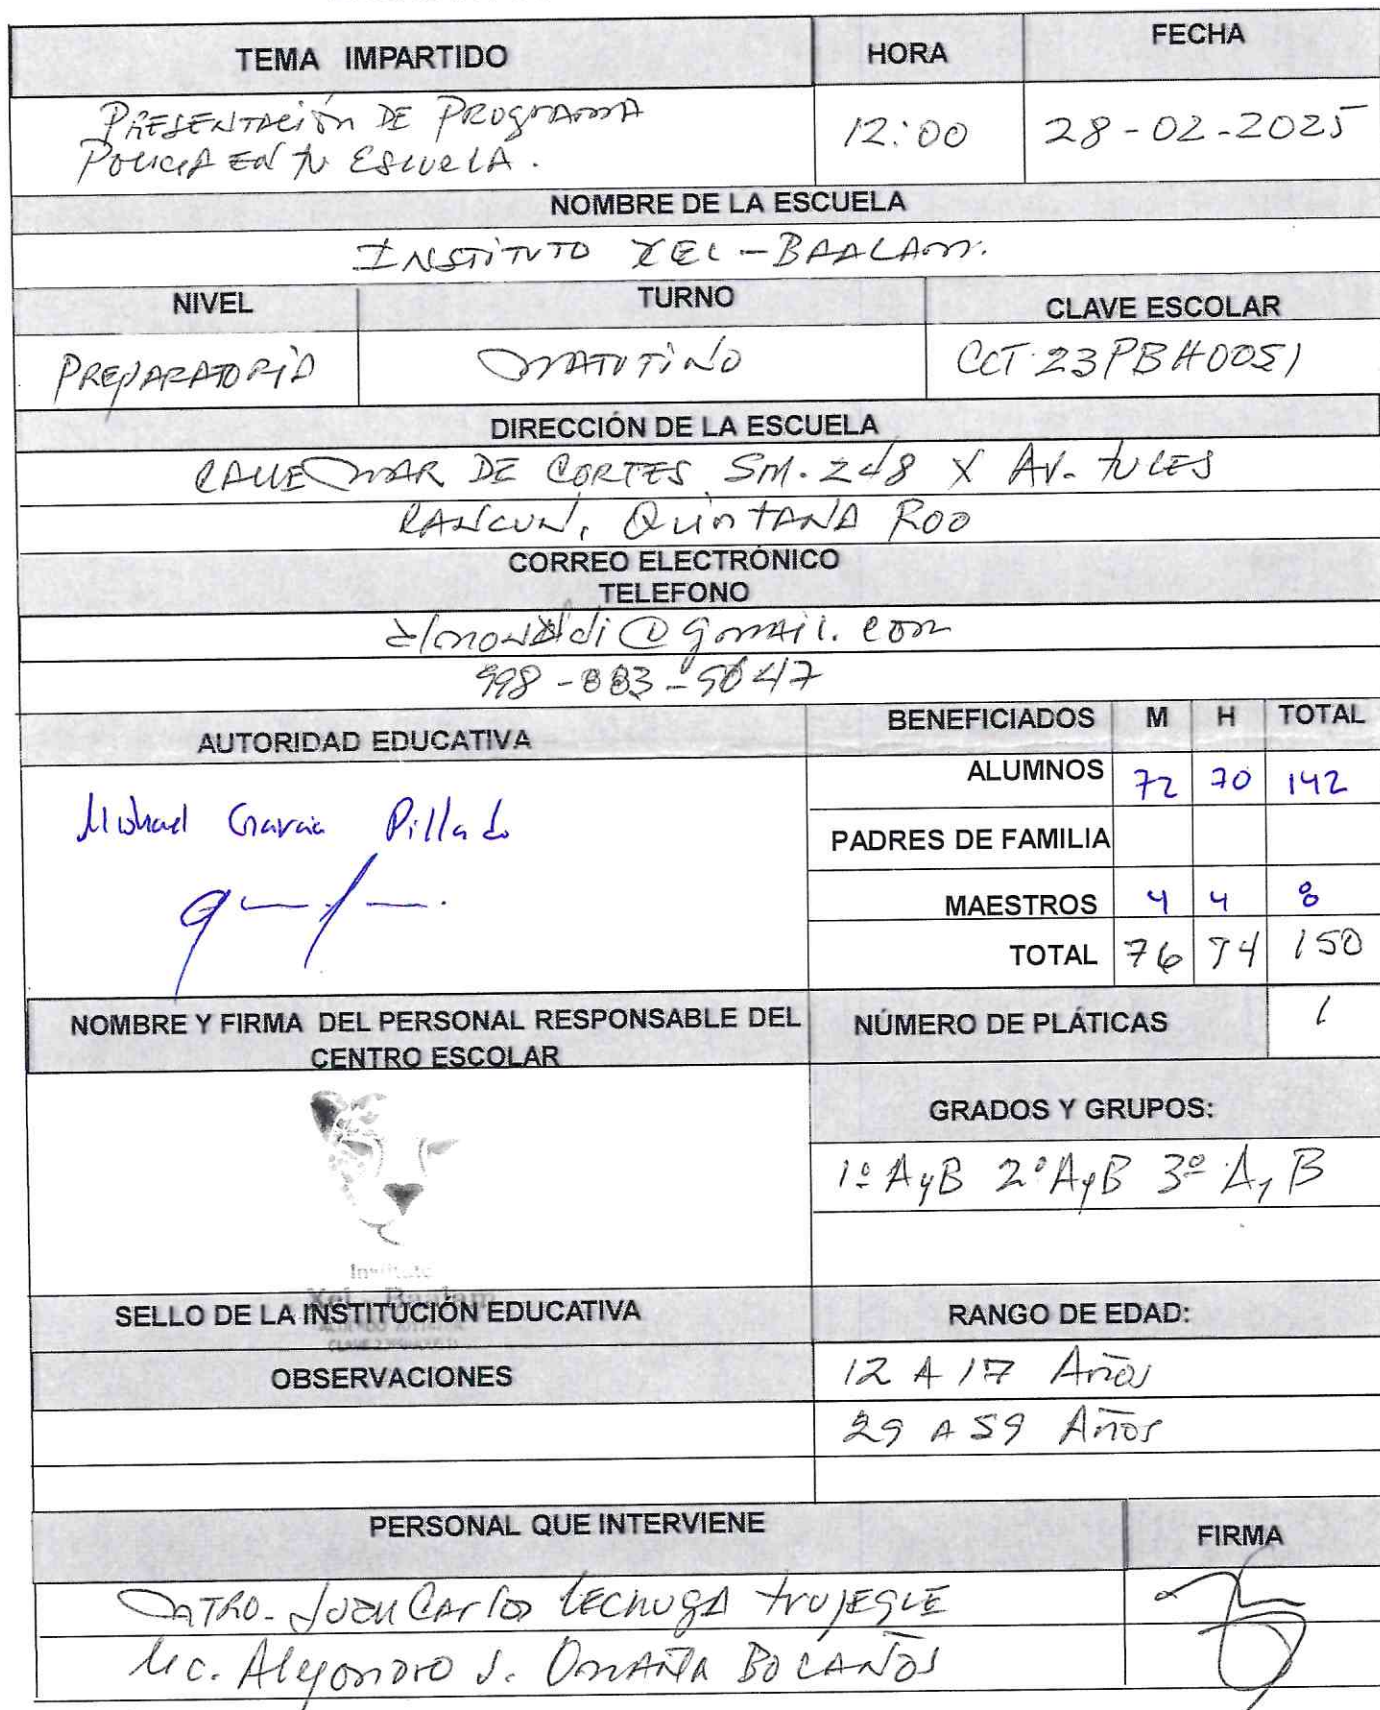 TEMA IMPARTIDO HORA FECHA
PRESENTACIÓN DE PROGRAMA
POLICIA EN TU ESCUELA. 12:00 28-02-2025
NOMBRE DE LA ESCUELA
INSTITUTO XEL-BAALAM.
NIVEL TURNO CLAVE ESCOLAR
PREPARATORIA MATUTINO CCT 23PBH0051
DIRECCIÓN DE LA ESCUELA
CALLE MAR DE CORTES SM. 248 X AV. TULES
CANCUN, QUINTANA ROO
CORREO ELECTRÓNICO
TELEFONO
@gmail.com
998-883-9847
AUTORIDAD EDUCATIVA BENEFICIADOS M H TOTAL
ALUMNOS 72 70 142
Michael Garcia Pillado
PADRES DE FAMILIA
MAESTROS 4 4 8
TOTAL 76 74 150
NOMBRE Y FIRMA DEL PERSONAL RESPONSABLE DEL
CENTRO ESCOLAR
NÚMERO DE PLÁTICAS 1
GRADOS Y GRUPOS:
1º A y B 2º A y B 3º A y B
Instituto
Xel - Baalam
SELLO DE LA INSTITUCIÓN EDUCATIVA RANGO DE EDAD:
OBSERVACIONES 12 A 17 Años
29 A 59 Años
PERSONAL QUE INTERVIENE FIRMA
MTRO. JUAN CARLOS LECHUGA TRUJEQUE
LIC. ALEJANDRO J. OMAÑA BOLAÑOS